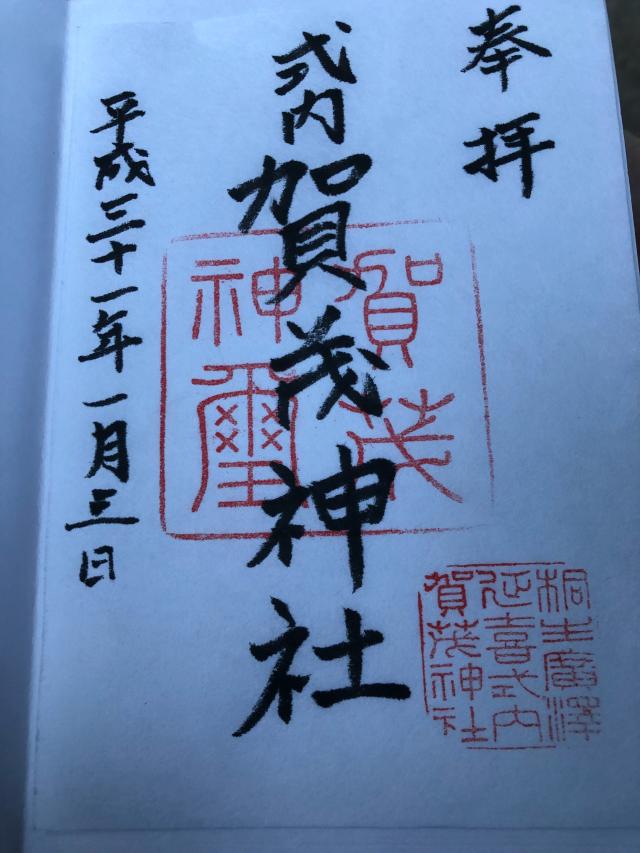 奉拝
式内 賀茂神社
平成三十一年一月三日
賀茂
神璽
桐生廣澤
延喜式内
賀茂神社